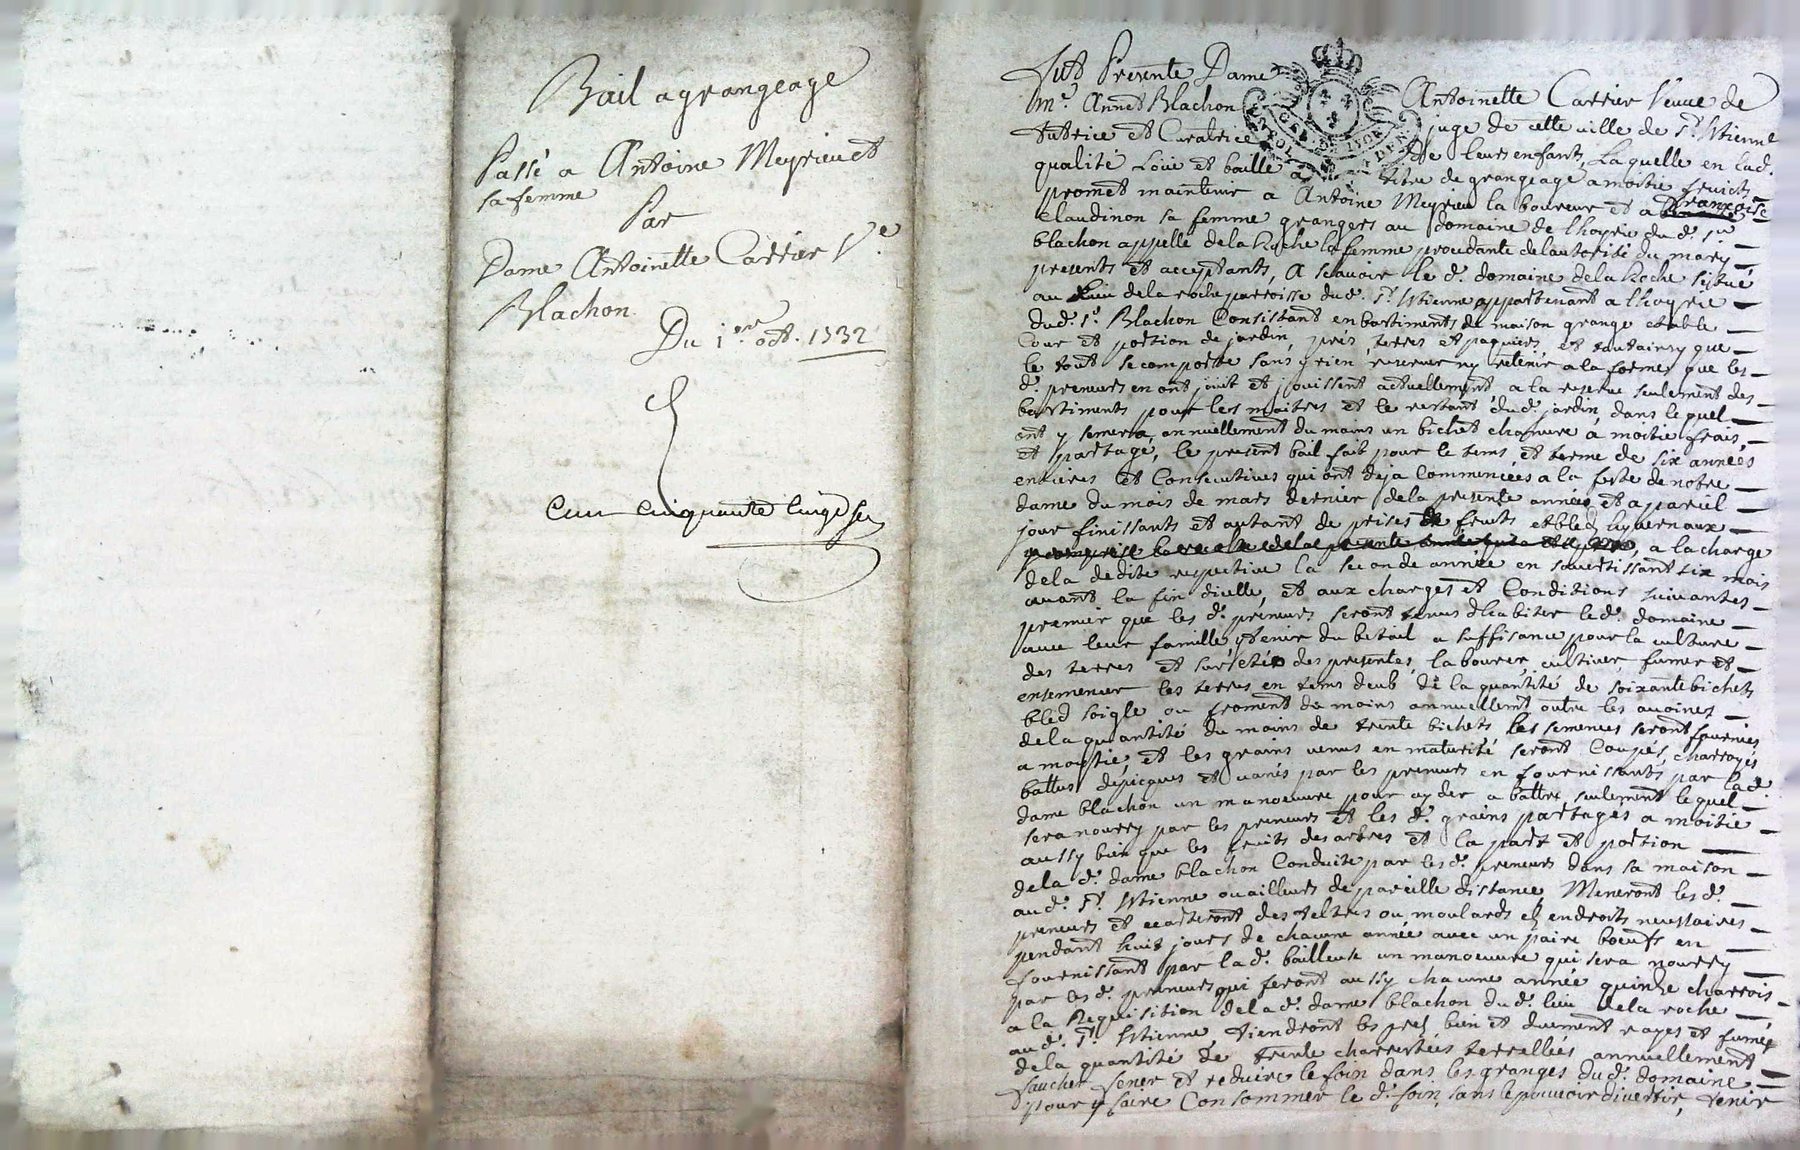 Bail a grangeage
Passé a Antoine Meyrieu et
sa femme
Par
Dame Antoinette Carrier V.e
Blachon
Du 1.er oct. 1732
Cent cinquante cinq
Fut Presente Dame Antoinette Carrier Veuue de
m.e Annet Blachon juge de cette ville de S.t Etienne
tutrice et Curatrice de leurs enfants, Laquelle en lad.
qualité Loüe et baille a titre de grangeage a moitié fruicts
promet maintenir a Antoine Meyrieu laboureur et a françoise
Claudinon sa femme grangers au domaine de lhoyrie du d. s.r
blachon appellé dela Roche la femme procedante de lautorité du mary
presents et acceptants, A scauoir le d. domaine dela Roche situé
au Lieu dela roche parroisse dud. S.t Etienne appartenant a lhoyrie
dud. s.r Blachon Consistant en bastiments de maison grange etable
Cour et portion de jardin, prés terres et paquiers et tout ainsy que
le tout se comporte sans y rien reserver ny retenir a la forme que les
d. preneurs en ont jouit et jouissent actuellement a la reserve seulement des
bastiments pour les maitres et le restant dud. jardin, dans lequel
ont y semera, annuellement du moins un bichet chanure a moitié frais
et partage, le present bail fait pour le tems et terme de six années
entieres et Consecutives qui ont deja Commencées a la feste de notre
dame du mois de mars dernier dela presente année et a pareil
jour finissants et autant de prises de fruits et bleds hyvernaux
, a la charge
dela dedite respective la seconde année en sauertissant six mois
auant la fin dicelle, et aux charges et Conditions suivantes
premier que les d. preneurs seront tenus dhabiter led. domaine
auec leur famille, y tenir du betail a suffisance pour la culture
des terres et sureté des presentes, labourer, cultiver, fumer et
ensemencer les terres en tems deub, de la quantité de soixante bichets
bled soigle ou froment du moins annuellement outre les auoines
dela quantité du moins de trente bichets les semences seront fournies
a moitié, et les grains venus en maturité seront Coupés, charroyés
battus dépicqués et vanés par les preneurs en fournissants par lad.
dame blachon un manoeuure pour ayder a battre seulement lequel
sera nourry par les preneurs et les d. grains partagés a moitié
aussy bien que les fruits des arbres et la part et portion
dela d. dame blachon Conduite par lesd. preneurs dans sa maison
aud. S.t Etienne ou ailleurs de pareille distance, Meneront les d.
preneurs et ecarteront des teltres ou moulards es endroits necessaires
pendant huit jours de chacune année auec un paire boeufs en
fournissant par lad. bailleuse un manoeuure qui sera nourry
par les d. preneurs qui feront aussy chacune année quinze charrois
a la Requisition dela d. dame blachon dud. lieu dela roche
aud. S.t Etienne tiendront les prés bien et duement rayés et fumés
dela quantité de trente charrettées terrellées annuellement
faucher fener et reduire le foin dans les granges dud. domaine
pour y faire Consommer le d. foin, sans le pouuoir divertir, tenir